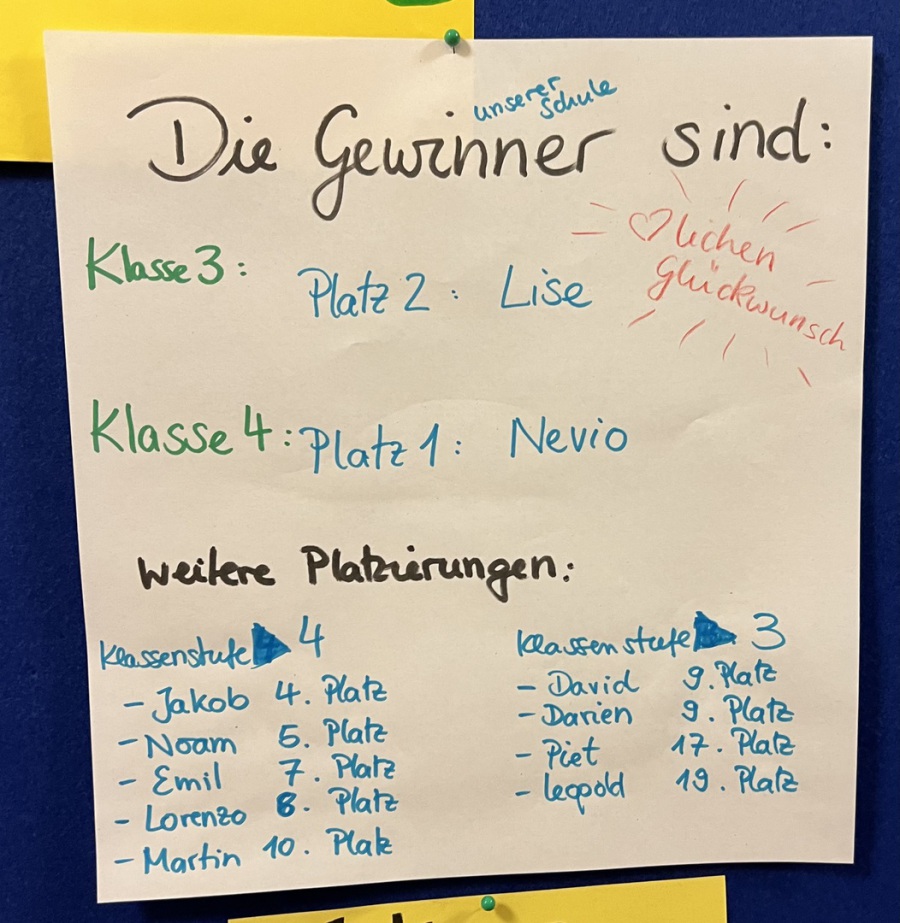 Die Gewinner unserer Schule sind:
♡lichen
Glückwunsch
Klasse 3: Platz 2: Lise
Klasse 4: Platz 1: Nevio
weitere Platzierungen:
Klassenstufe 4
- Jakob 4. Platz
- Noam 5. Platz
- Emil 7. Platz
- Lorenzo 8. Platz
- Martin 10. Platz
Klassenstufe 3
- David 9. Platz
- Darien 9. Platz
- Piet 17. Platz
- Leopold 19. Platz